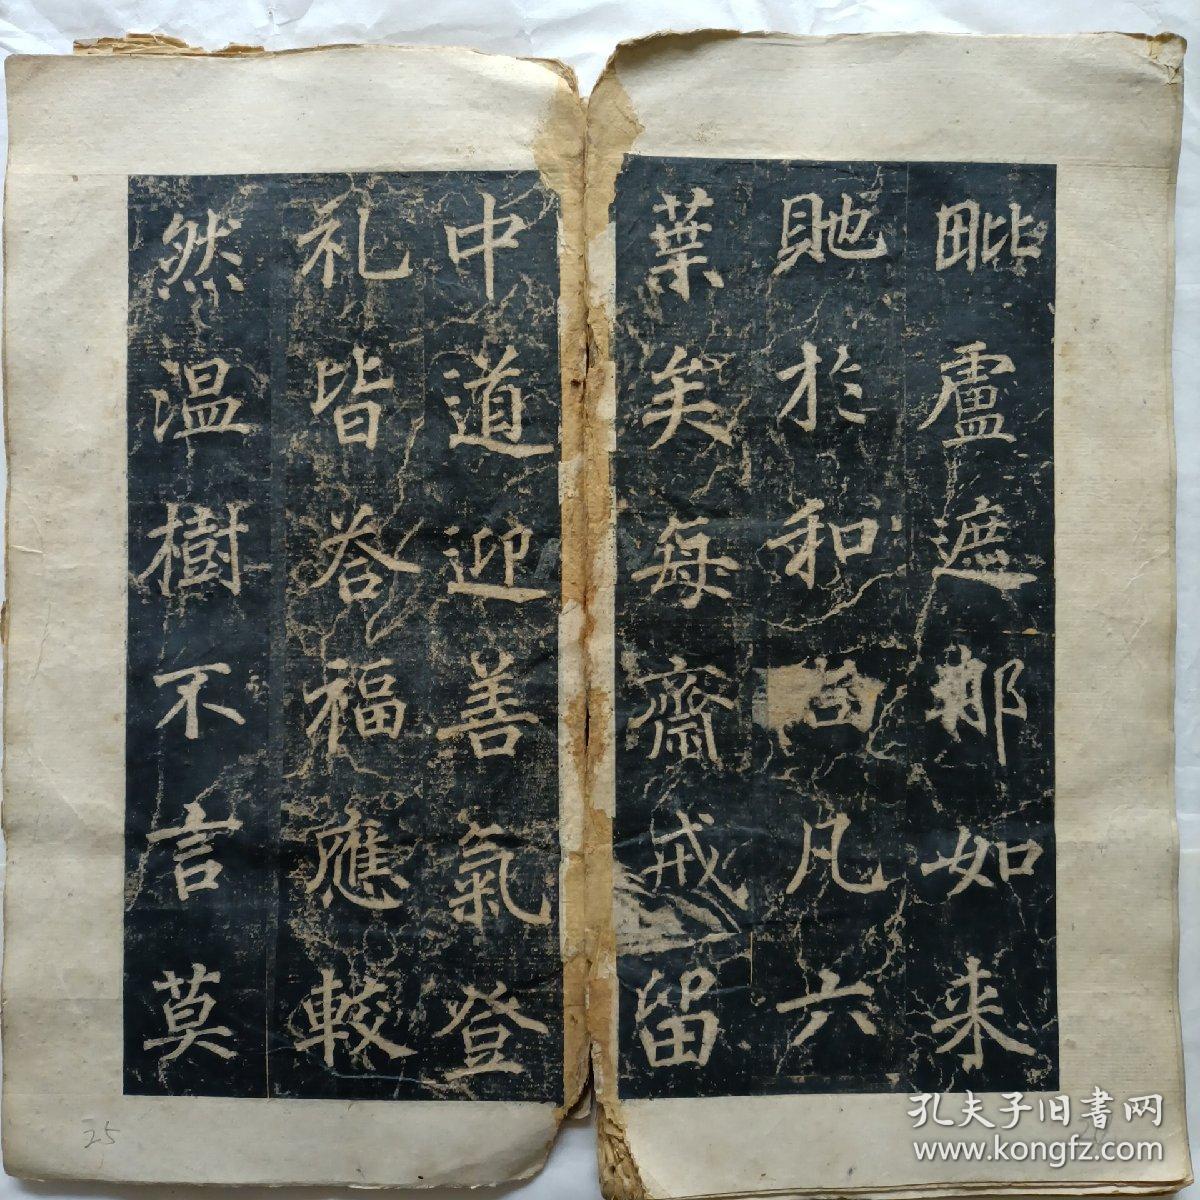 毗盧遮那如来
貤於和凡六
葉矣每齋戒留
中道迎善氣登
礼皆荅福應較
然温樹不言莫
25
孔夫子旧書网
www.kongfz.com